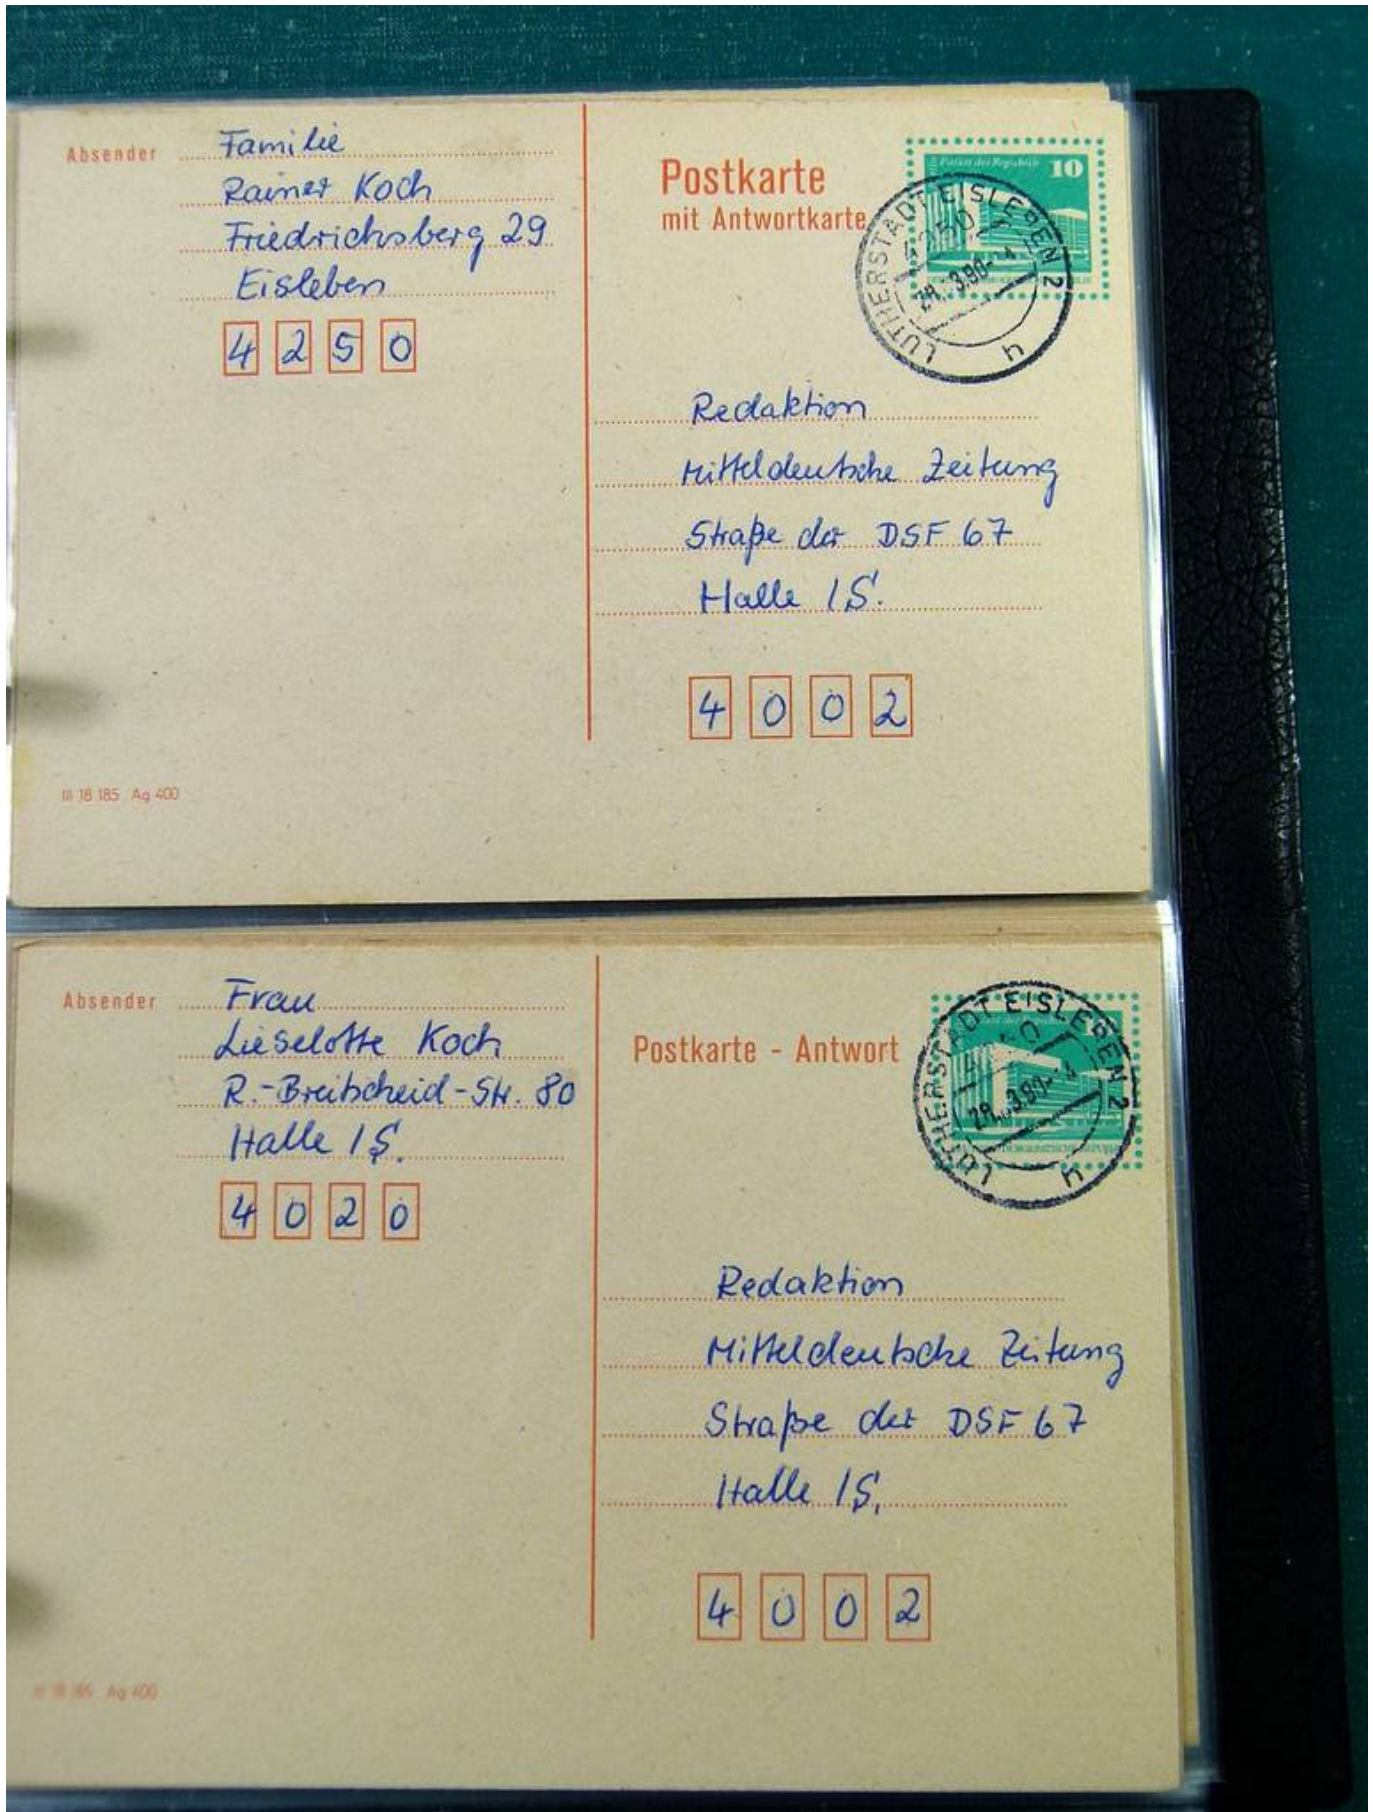 Absender Familie
Rainer Koch
Friedrichsberg 29
Eisleben
4 2 5 0
Postkarte
mit Antwortkarte
Palast der Republik 10
LUTHERSTADT EISLEBEN 2
4250
28.-3.90-14
h
Redaktion
Mitteldeutsche Zeitung
Straße der DSF 67
Halle /S.
4 0 0 2
III 18 185 Ag 400
Absender Frau
Lieselotte Koch
R.-Breitscheid-Str. 80
Halle /S.
4 0 2 0
Postkarte - Antwort
LUTHERSTADT EISLEBEN 2
28.-3.90-14
h
Redaktion
Mitteldeutsche Zeitung
Straße der DSF 67
Halle /S.
4 0 0 2
III 18 185 Ag 400